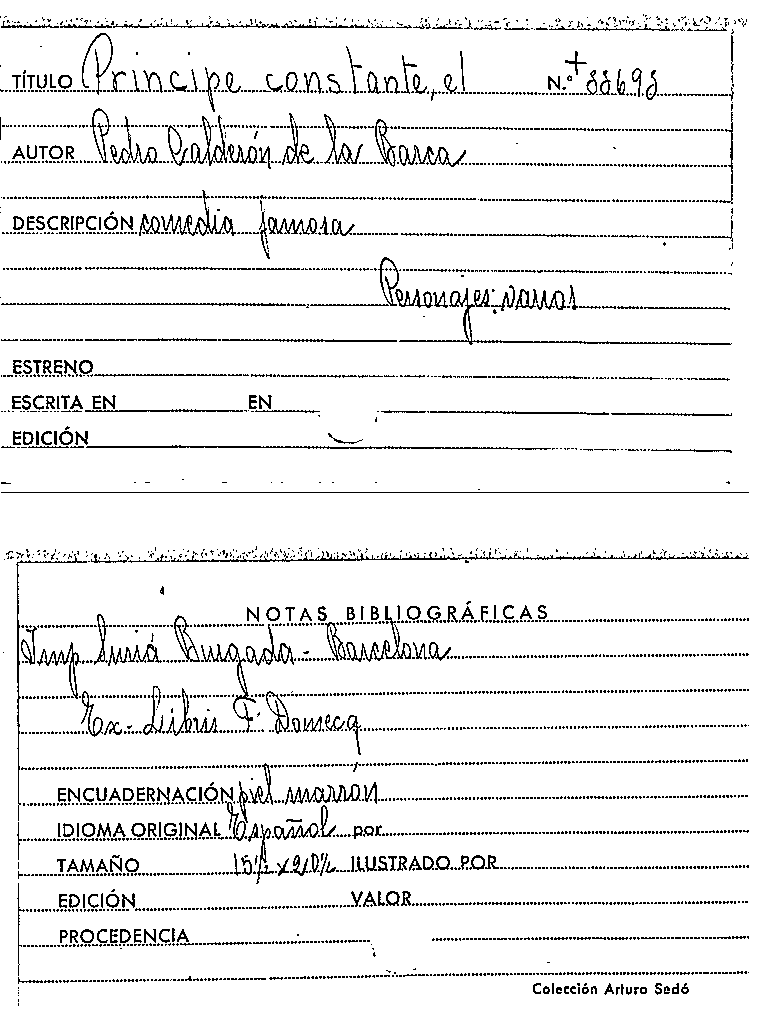 TÍTULO Principe constante, el N.º +88698
AUTOR Pedro Calderón de la Barca
DESCRIPCIÓN comedia famosa
Personajes: varios
ESTRENO
ESCRITA EN EN
EDICIÓN
NOTAS BIBLIOGRÁFICAS
Imp Suriá Burgada - Barcelona
Ex-Libris F. Domecq
ENCUADERNACIÓN piel marrón
IDIOMA ORIGINAL Español por
TAMAÑO ILUSTRADO POR
EDICIÓN VALOR
PROCEDENCIA
Colección Arturo Sedó